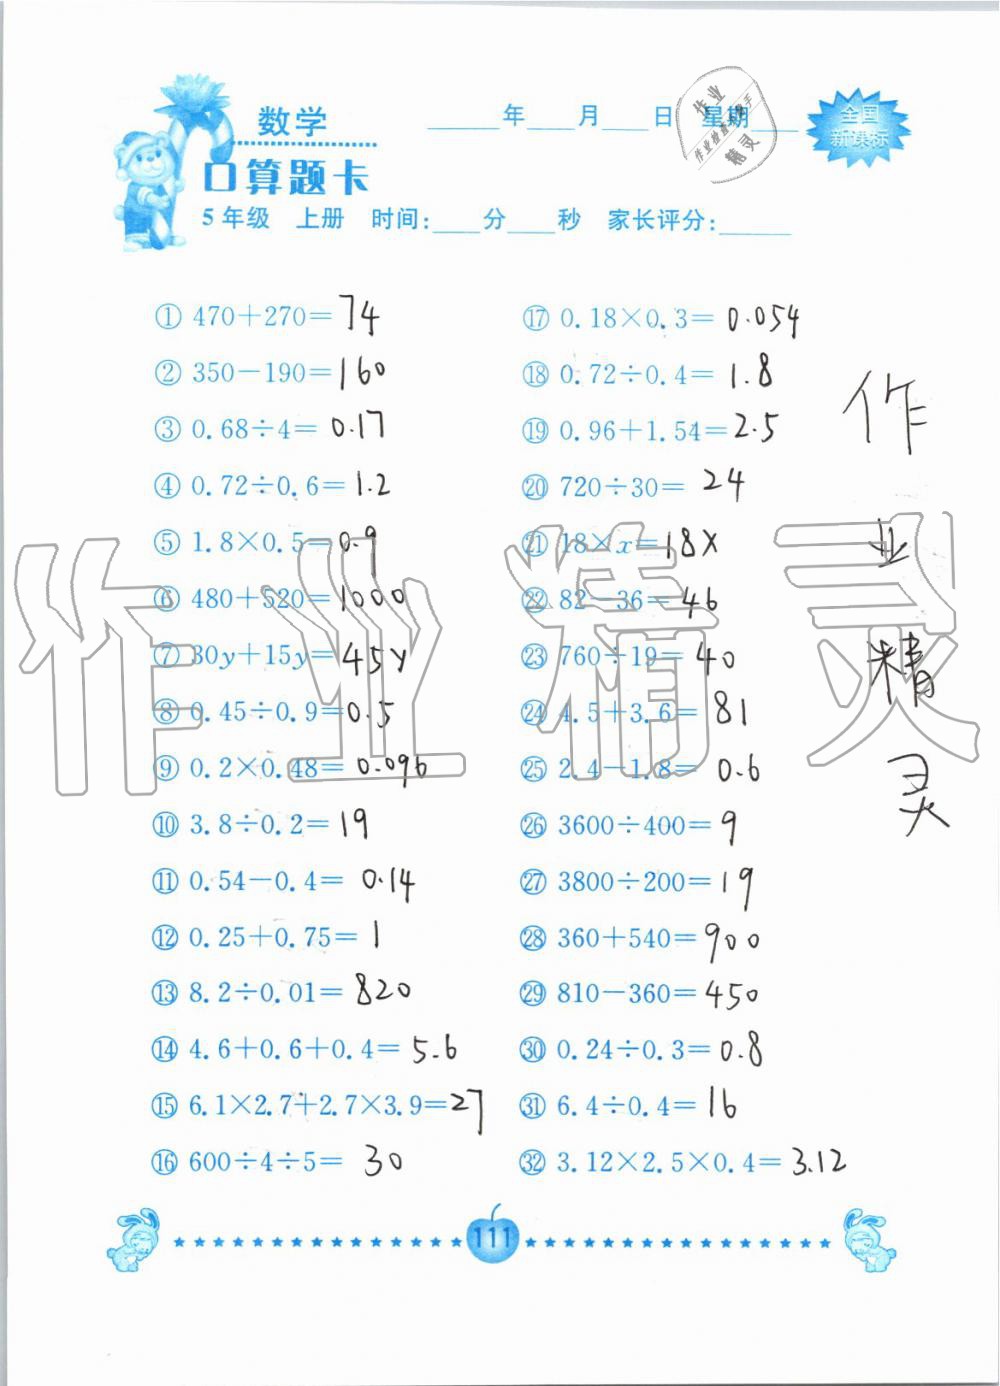 数学
____年____月____日 星期____
全国
新课标
作业
作业检查小助手
精灵
口算题卡
5年级 上册 时间:____分____秒 家长评分:______
① 470+270=74
② 350-190=160
③ 0.68÷4=0.17
④ 0.72÷0.6=1.2
⑤ 1.8×0.5=0.9
⑥ 480+520=1000
⑦ 30y+15y=45y
⑧ 0.45÷0.9=0.5
⑨ 0.2×0.48=0.096
⑩ 3.8÷0.2=19
⑪ 0.54-0.4=0.14
⑫ 0.25+0.75=1
⑬ 8.2÷0.01=820
⑭ 4.6+0.6+0.4=5.6
⑮ 6.1×2.7+2.7×3.9=27
⑯ 600÷4÷5=30
⑰ 0.18×0.3=0.054
⑱ 0.72÷0.4=1.8
⑲ 0.96+1.54=2.5
⑳ 720÷30=24
㉑ 18×x=18x
㉒ 82-36=46
㉓ 760÷19=40
㉔ 4.5+3.6=81
㉕ 2.4-1.8=0.6
㉖ 3600÷400=9
㉗ 3800÷200=19
㉘ 360+540=900
㉙ 810-360=450
㉚ 0.24÷0.3=0.8
㉛ 6.4÷0.4=16
㉜ 3.12×2.5×0.4=3.12
作
业
精
灵
作业精灵
111